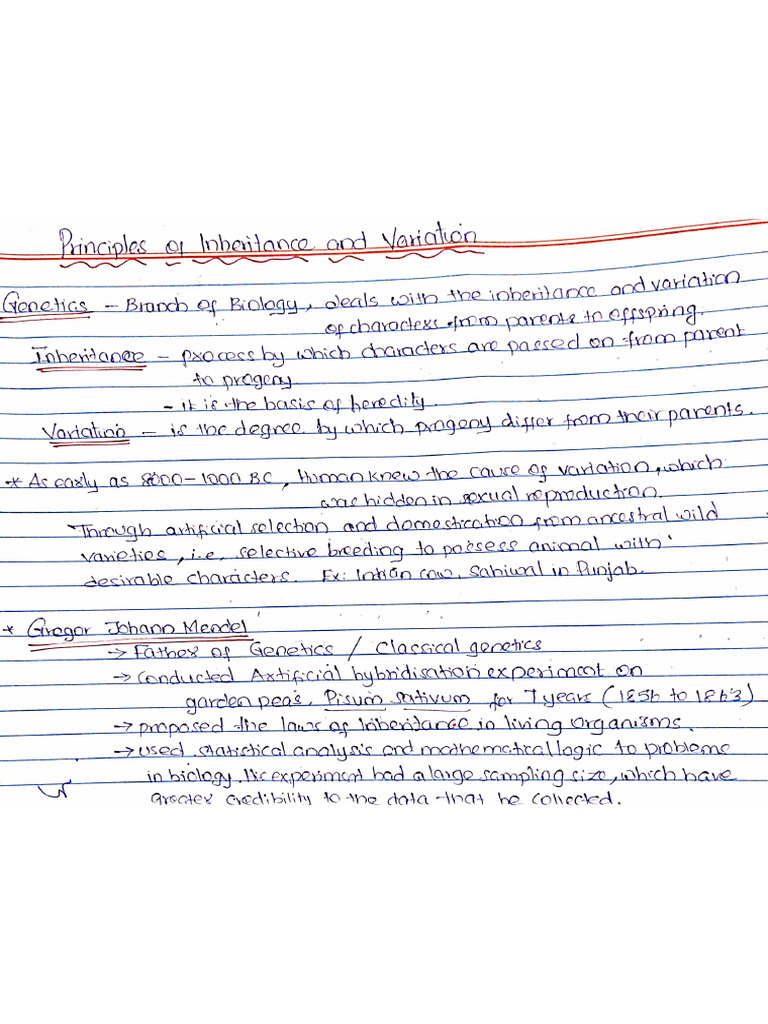 Principles of Inheritance and Variation
Genetics - Branch of Biology, deals with the inheritance and variation
of characters from parents to offspring.
Inheritance - process by which characters are passed on from parent
to progeny
- it is the basis of heredity.
Variation - is the degree by which progeny differ from their parents.
* As early as 8000-1000 BC, Human knew the cause of variation, which
was hidden in sexual reproduction.
Through artificial selection and domestication from ancestral wild
varieties, i.e, selective breeding to possess animal with
desirable characters. Ex: Indian cow, Sahiwal in Punjab.
* Gregor Johann Mendel
→ Father of Genetics / Classical genetics
→ conducted Artificial hybridisation experiment on
garden peas, Pisum sativum for 7 years (1856 to 1863)
→ proposed the laws of Inheritance in living organisms.
→ used statistical analysis and mathematical logic to problems
in biology. His experiment had a large sampling size, which have
greater credibility to the data that he collected.